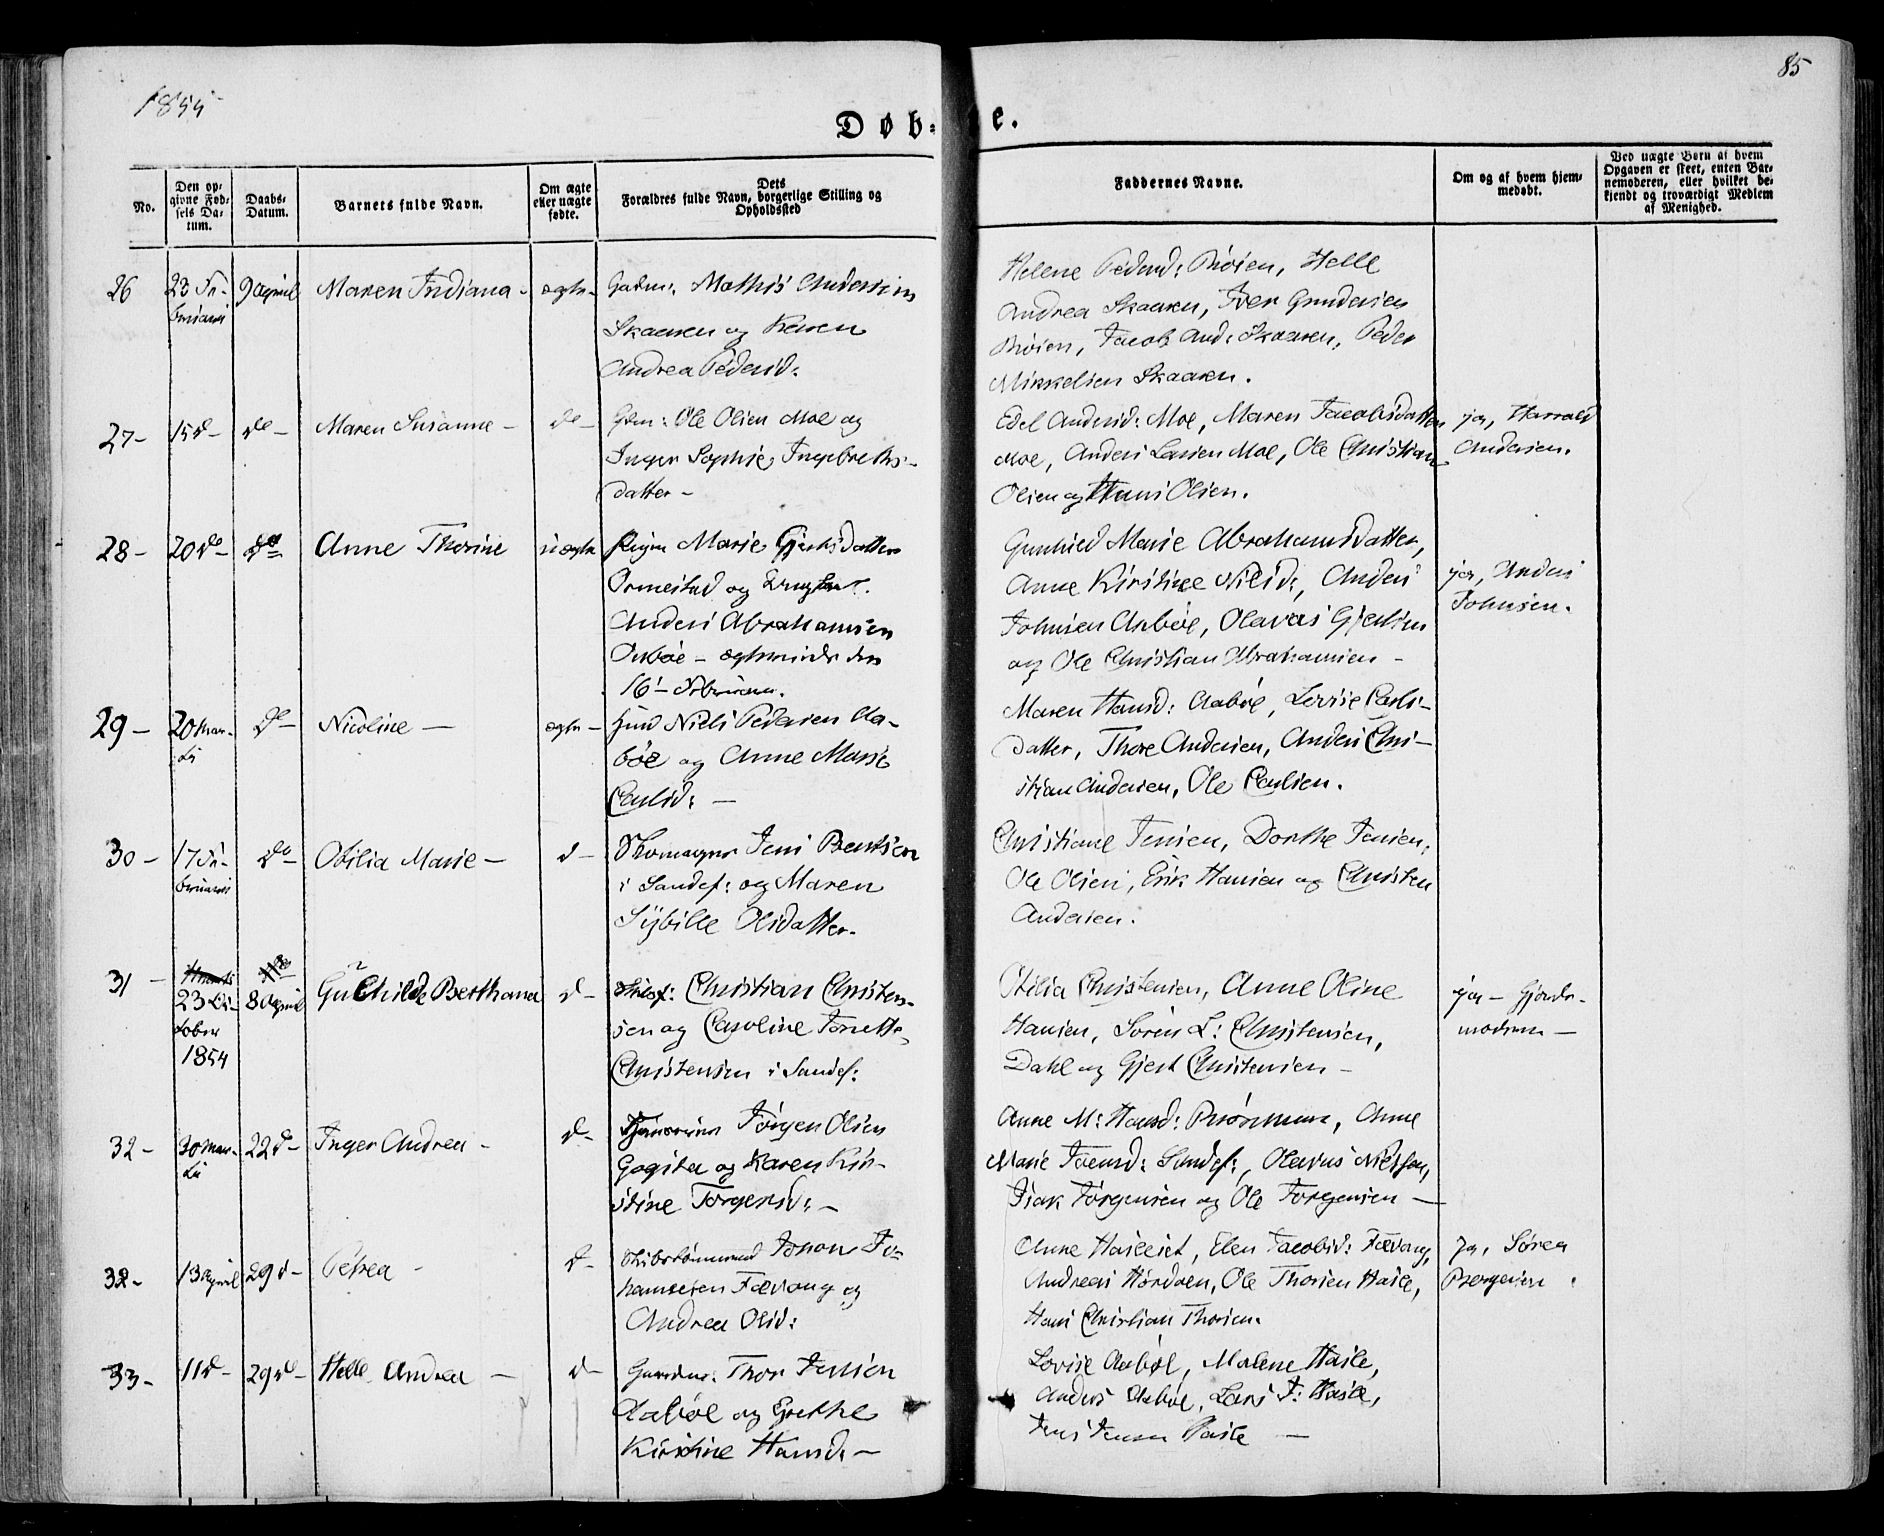 1855
85
Døb-te.
No.
Den op-
givne Fød-
sels Da-
tum.
Daabs-
Datum.
Barnets fulde Navn.
Om ægte
eller uægte
fødte.
Dets
Forældres fulde Navn, borgerlige Stilling og
Opholdssted
Faddernes Navne.
Om og af hvem hjem-
medøbt.
Ved uægte Børn af hvem
Opgaven er skeet, enten Bar-
nemoderen, eller hvilket be-
kjendt og troværdigt Medlem
af Menighed.
26
23 Fe-
bruarii
9 April
Maren Indiana -
ægte -
Gadm: Mathis Anderssen
Skaaren og Karen
Andrea Pedersd:
Helene Pedersd: Brøien, Helle
Andrea Skaaren, Iver Gundersen
Brøien, Jacob And: Skaaren, Peder
Mikkelsen Skaaren.
27 -
15 d -
do -
Maren Susanne -
do -
Gdm: Ole Olsen Moe og
Inger Sophie Ingebreths-
datter -
Edel Andersd: Moe, Maren Jacobsdatter
Moe, Anders Larsen Moe, Ole Christian
Olsen og Hans Olsen.
ja, Harrald
Andersen.
28 -
20 do -
do
Anne Thorine
uægte
Pigen Marie Gjertsdatter
Ormestad og
Anders Abrahamsen
Aabøe -
16 - Februar.
Gunhild Marie Abrahamsdatter,
Anne Kirstine Nilsd:, Anders
Johnsen Aabøe, Olavus Gjertsen
og Ole Christian Abrahamsen -
ja, Anders
Johnsen.
29 -
20 Mar-
tii
do -
Nicoline -
ægte -
Huusm Niels Pedersen Aa-
bøe og Anne Marie
Carlsd: -
Maren Hansd: Aabøe, Lovise Carls-
datter, Thore Andersen, Anders Chri-
stian Andersen, Ole Carlsen.
30 -
17 Fe-
bruarii
do -
Otilia Marie -
d -
Skomager Jens Bentsen
i Sandef: og Maren
Sybille Olsdatter.
Christiane Jensen, Dorthe Jensen,
Ole Olsen, Erik Hansen og Christen
Andersen.
31 -
23 Oc-
tober
1854
8 April
Gunhilde Berthana
d -
Christian Christen-
sen og Caroline Jorette
Christensen i Sandef:
Otilia Christensen, Anne Oline
Hansen, Søren L: Christensen,
Dahl og Gjert Christensen -
ja - Gjorde-
moderen -
32 -
30 Mar-
tii
22 d -
Inger Andrea -
d -
Jørgen Olsen
Gogstad og Karen Kir-
stine Torgersd: -
Anne M: Hansd: , Anne
Marie Jacosd: Sandef:, Olavus Nielsen,
Isak Jørgensen og Ole Jørgensen -
32 -
13 April
29 d -
Petrea -
d -
Skibstømmermd Johan Jo-
hannesen Fævang og
Andrea Olsd:
Anne Hasleiet, Elen Jacobsd: Fævang,
Andreas Hørdaen, Ole Thorsen Hasle,
Hans Christian Thorsen.
Ja, Søren
Børgesen.
33 -
11 d -
29 d -
Helle Andrea -
d -
Gaardm: Thor Jensen
Aabøe og Grethe
Kirstine Hansd: -
Lovise Aabøe, Malene Hasle,
Anders Aabøe, Lars J: Hasle,
Jens Jensen Hasle -